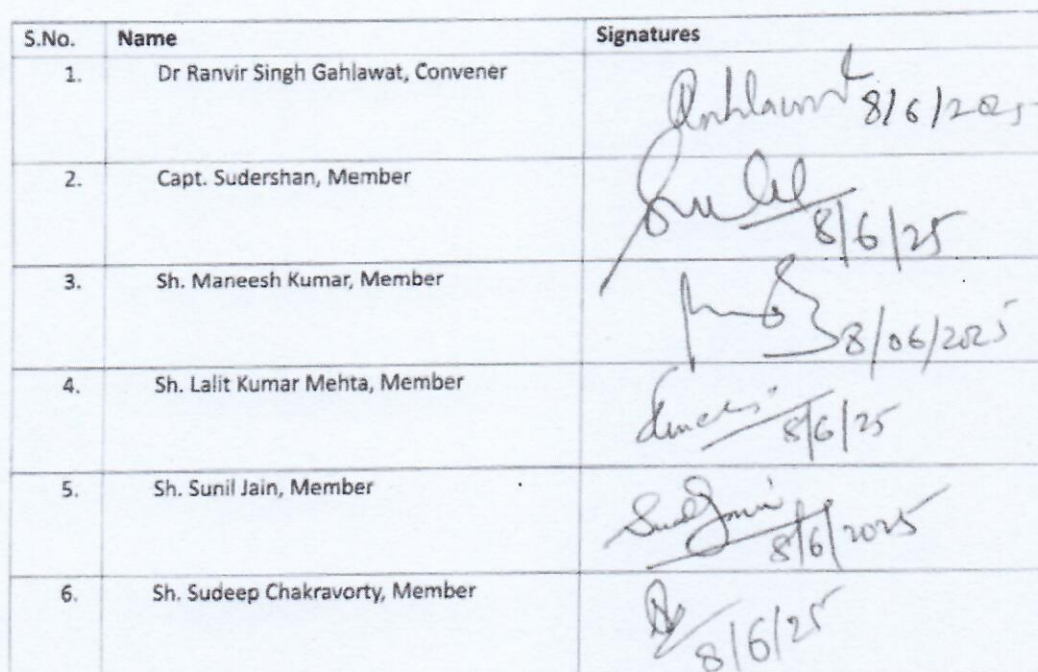 S.No. Name Signatures
1. Dr Ranvir Singh Gahlawat, Convener
8/6/2025
2. Capt. Sudershan, Member
8/6/25
3. Sh. Maneesh Kumar, Member
8/06/2025
4. Sh. Lalit Kumar Mehta, Member
8/6/25
5. Sh. Sunil Jain, Member
Sunil Jain
8/6/2025
6. Sh. Sudeep Chakravorty, Member
8/6/25